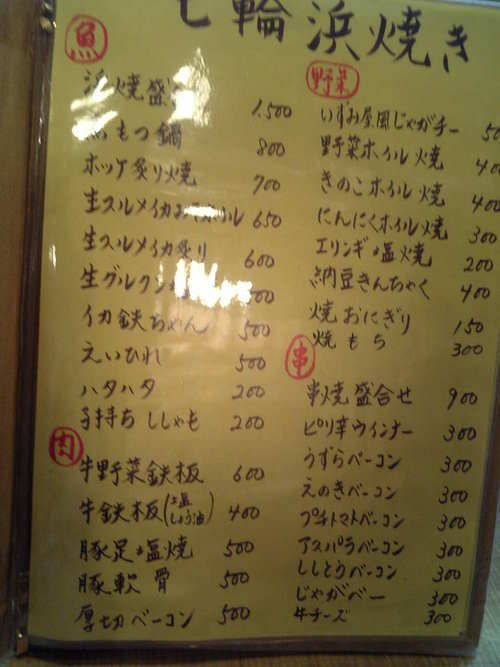 七輪浜焼き
魚
浜焼盛合 1.500
もつ鍋 800
ホッケ炙り焼 700
生スルメイカ ホイル 650
生スルメイカ炙り 600
生グルクン
イカ鉄ちゃん 500
えいひれ 500
ハタハタ 200
子持ちししゃも 200
肉
牛野菜鉄板 600
牛鉄板(塩 しょう油) 400
豚足塩焼 500
豚軟骨 500
厚切ベーコン 500
野菜
いずみ屋風じゃがチー
野菜ホイル焼
きのこホイル焼 400
にんにくホイル焼 300
エリンギ塩焼 200
納豆きんちゃく 400
焼おにぎり 150
焼もち 300
串
串焼盛合せ 900
ピリ辛ウインナー 300
うずらベーコン 300
えのきベーコン 300
プチトマトベーコン 300
アスパラベーコン 300
ししとうベーコン 300
じゃがベー 300
牛チーズ 300